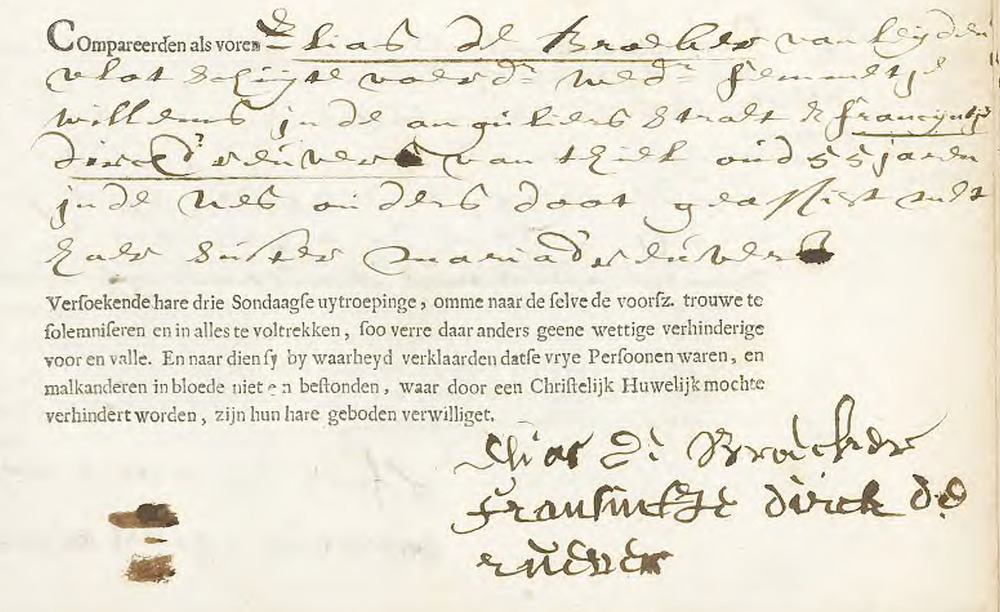 Compareerden als voren Elias de Broeker van leijden
vlot schuijte voerdr wedr femmetje
willems in de anguliers straet & francyntje
dirckx van thiel oud 55 jaren
in de nes ouders doot geassist met
haer suster maria
Versoekende hare drie Sondaagse uytroepinge, omme naar de selve de voorsz. trouwe te
solemniseren en in alles te voltrekken, soo verre daar anders geene wettige verhinderige
voor en valle. En naar dien sy by waarheyd verklaarden datse vrye Persoonen waren, en
malkanderen in bloede niet en bestonden, waar door een Christelijk Huwelijk mochte
verhindert worden, zijn hun hare geboden verwilliget.
Elias de Broicker
fransintge dirck de